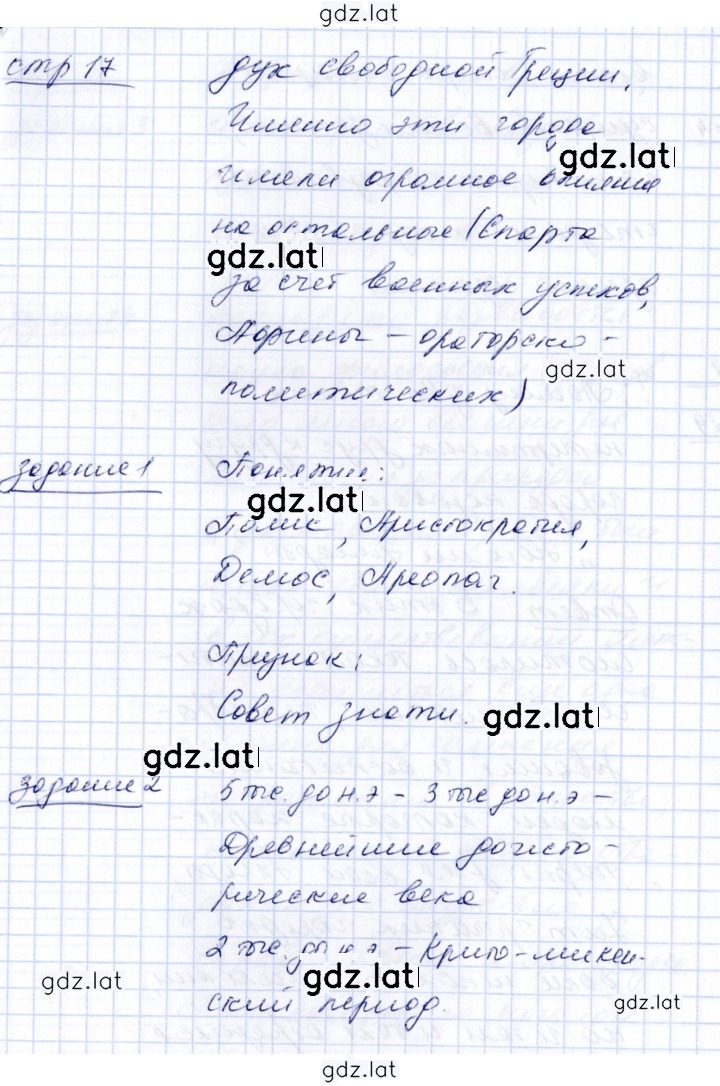 gdz.lat
стр 17 дух свободной Греции.
Именно эти города
gdz.lat
имели огромное влияние
на остальные (Спарта
gdz.lat
за счет военных успехов,
Афины – ораторско-
gdz.lat
политических)
задание 1 Понятие:
gdz.lat
Полис, Аристократия,
Демос, Ареопаг.
Признак:
Совет знати.
gdz.lat
gdz.lat
задание 2 5 тыс. до н.э – 3 тыс до н.э –
Древнейшие доисто-
рические века
2 тыс. до н.э – Крито-микен-
gdz.lat
gdz.lat
ский период.
gdz.lat
gdz.lat